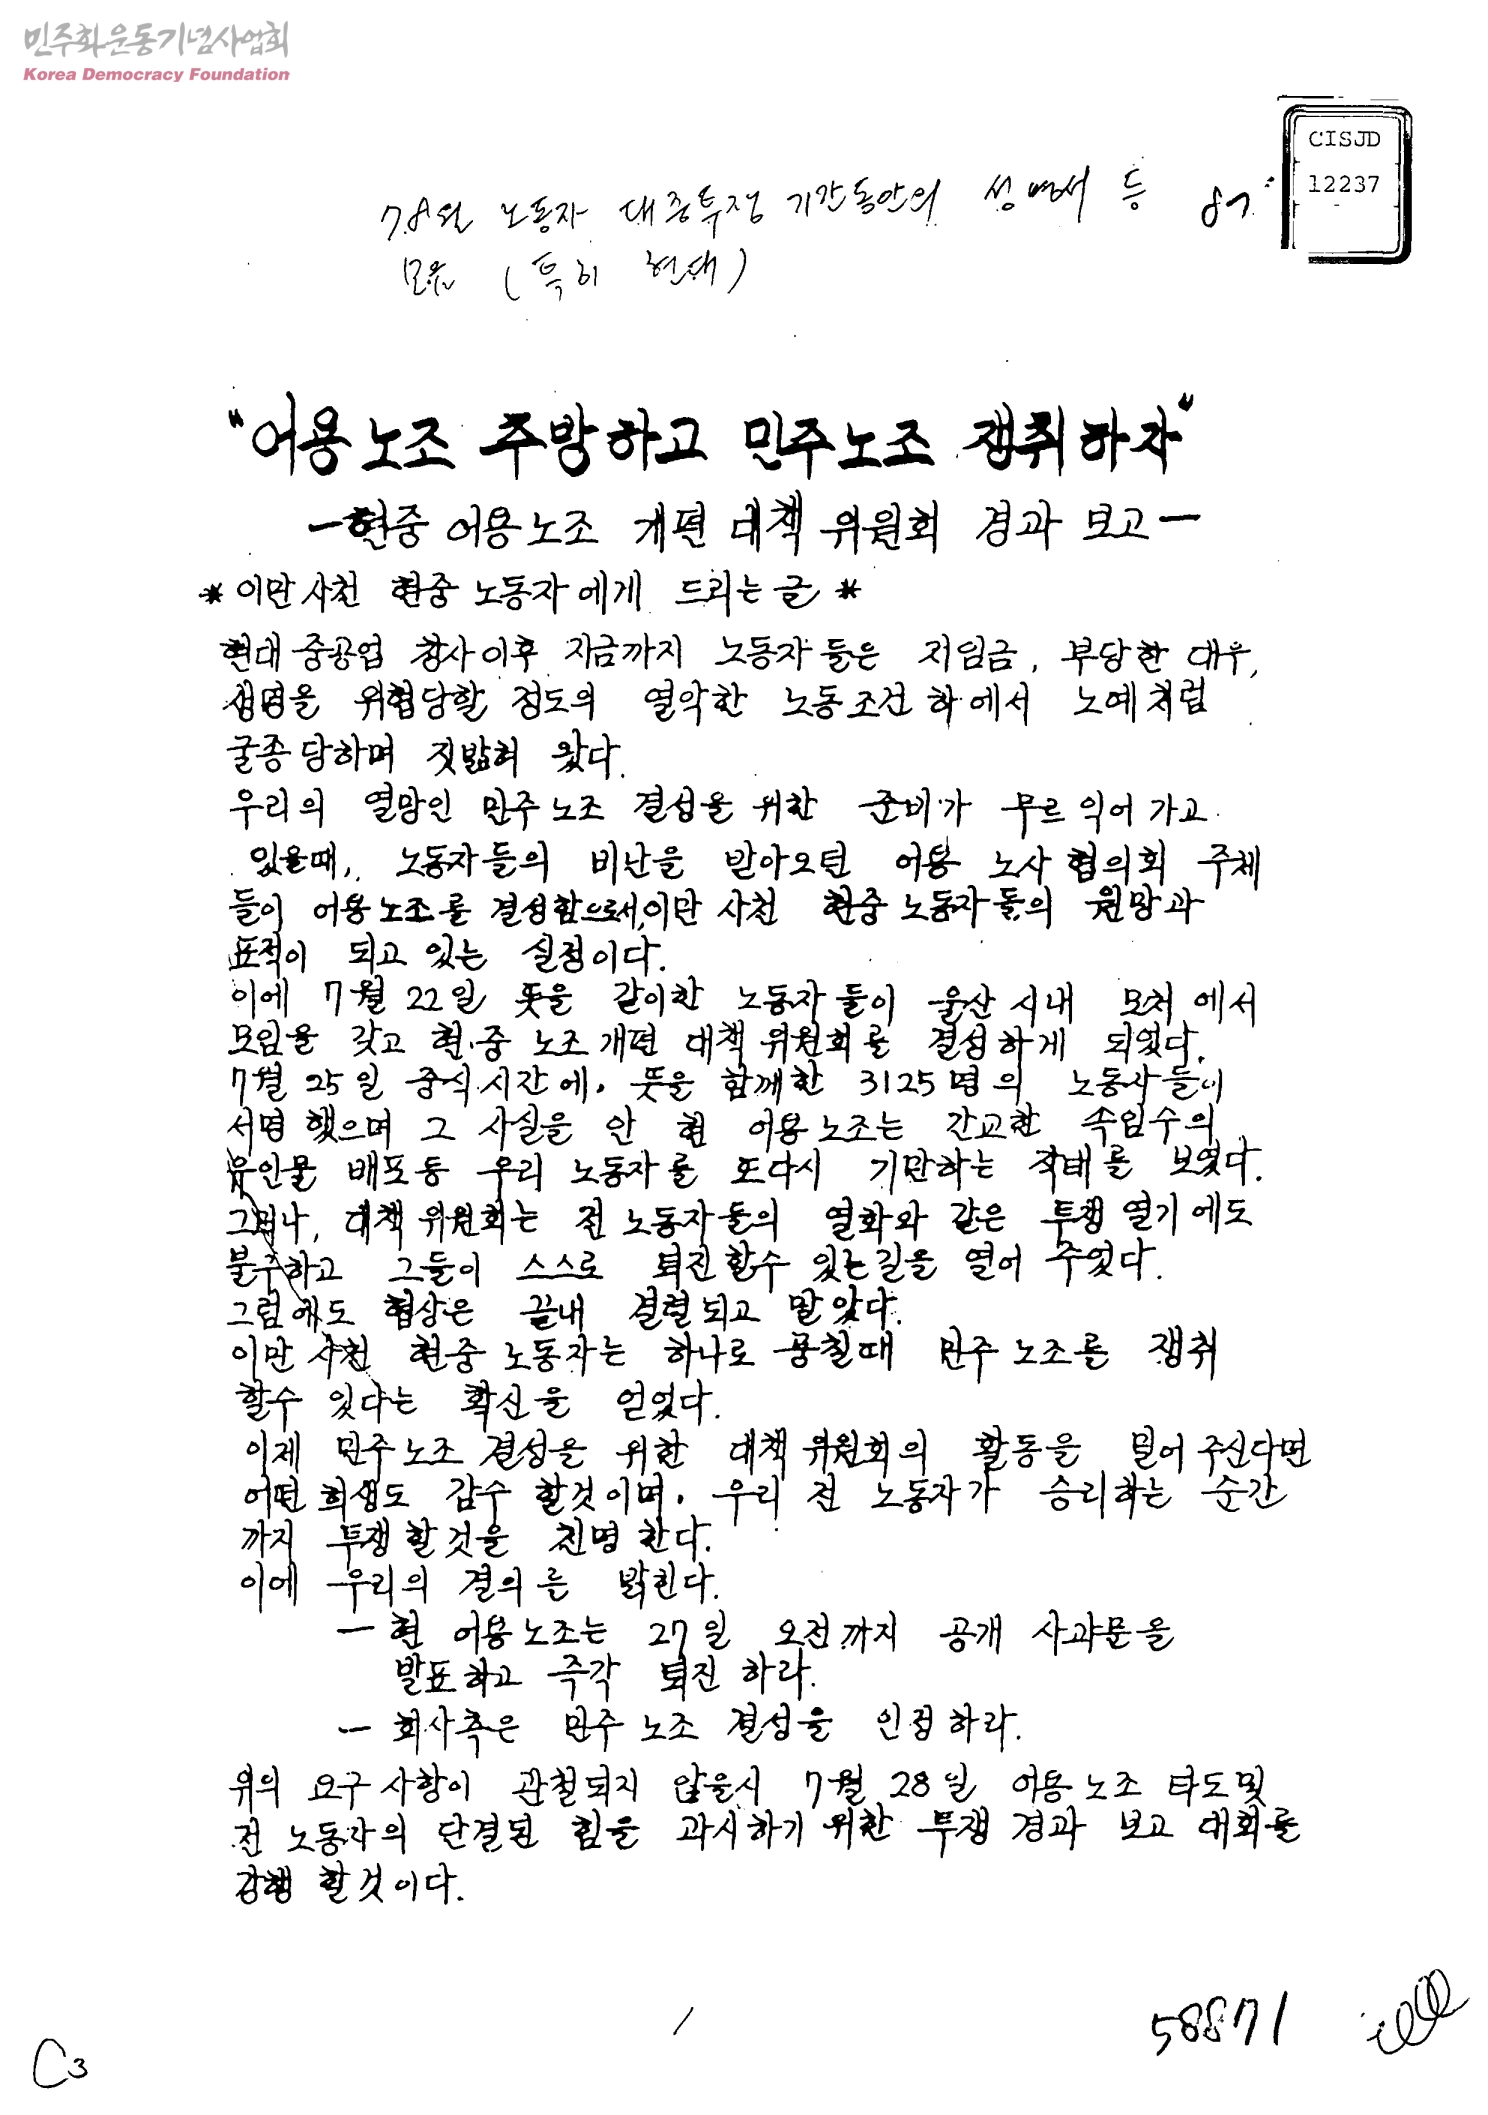 민주화운동기념사업회
Korea Democracy Foundation
CISJD
12237
7.8월 노동자 대중투쟁 기간동안의 성명서 등 87.
모음 (특히 현대)
"어용노조 추방하고 민주노조 쟁취하자"
-현중 어용노조 개편 대책 위원회 경과 보고-
* 이만사천 현중 노동자에게 드리는 글 *
현대 중공업 창사이후 지금까지 노동자 들은 저임금, 부당한 대우,
생명을 위협당할 정도의 열악한 노동조건 하에서 노예처럼
굴종당하며 짓밟혀 왔다.
우리의 열망인 민주노조 결성을 위한 준비가 무르익어 가고
있을때, 노동자들의 비난을 받아오던 어용 노사협의회 주체
들이 어용노조를 결성함으로서, 이만 사천 현중 노동자들의 원망과
표적이 되고 있는 실정이다.
이에 7월 22일 뜻을 같이한 노동자 들이 울산 시내 모처에서
모임을 갖고 현.중 노조개편 대책 위원회를 결성하게 되었다.
7월 25일 중식시간에, 뜻을 함께한 3125명의 노동자들이
서명했으며 그 사실을 안 현 어용노조는 간교한 속임수의
유인물 배포등 우리 노동자를 또다시 기만하는 작태를 보였다.
그러나, 대책위원회는 전 노동자들의 열화와 같은 투쟁열기에도
불구하고 그들이 스스로 퇴진할수 있는길을 열어 주었다.
그럼에도 협상은 끝내 결렬되고 말았다.
이만 사천 현중 노동자는 하나로 뭉칠때 민주노조를 쟁취
할수 있다는 확신을 얻었다.
이제 민주노조 결성을 위한 대책위원회의 활동을 밀어주신다면
어떤 희생도 감수 할것이며, 우리 전 노동자가 승리하는 순간
까지 투쟁할것을 천명한다.
이에 우리의 결의를 밝힌다.
- 현 어용노조는 27일 오전까지 공개 사과문을
발표하고 즉각 퇴진 하라.
- 회사측은 민주 노조 결성을 인정하라.
위의 요구사항이 관철되지 않을시 7월 28일 어용노조 타도및
전 노동자의 단결된 힘을 과시하기 위한 투쟁 경과 보고 대회를
강행 할것이다.
1
58871
C3